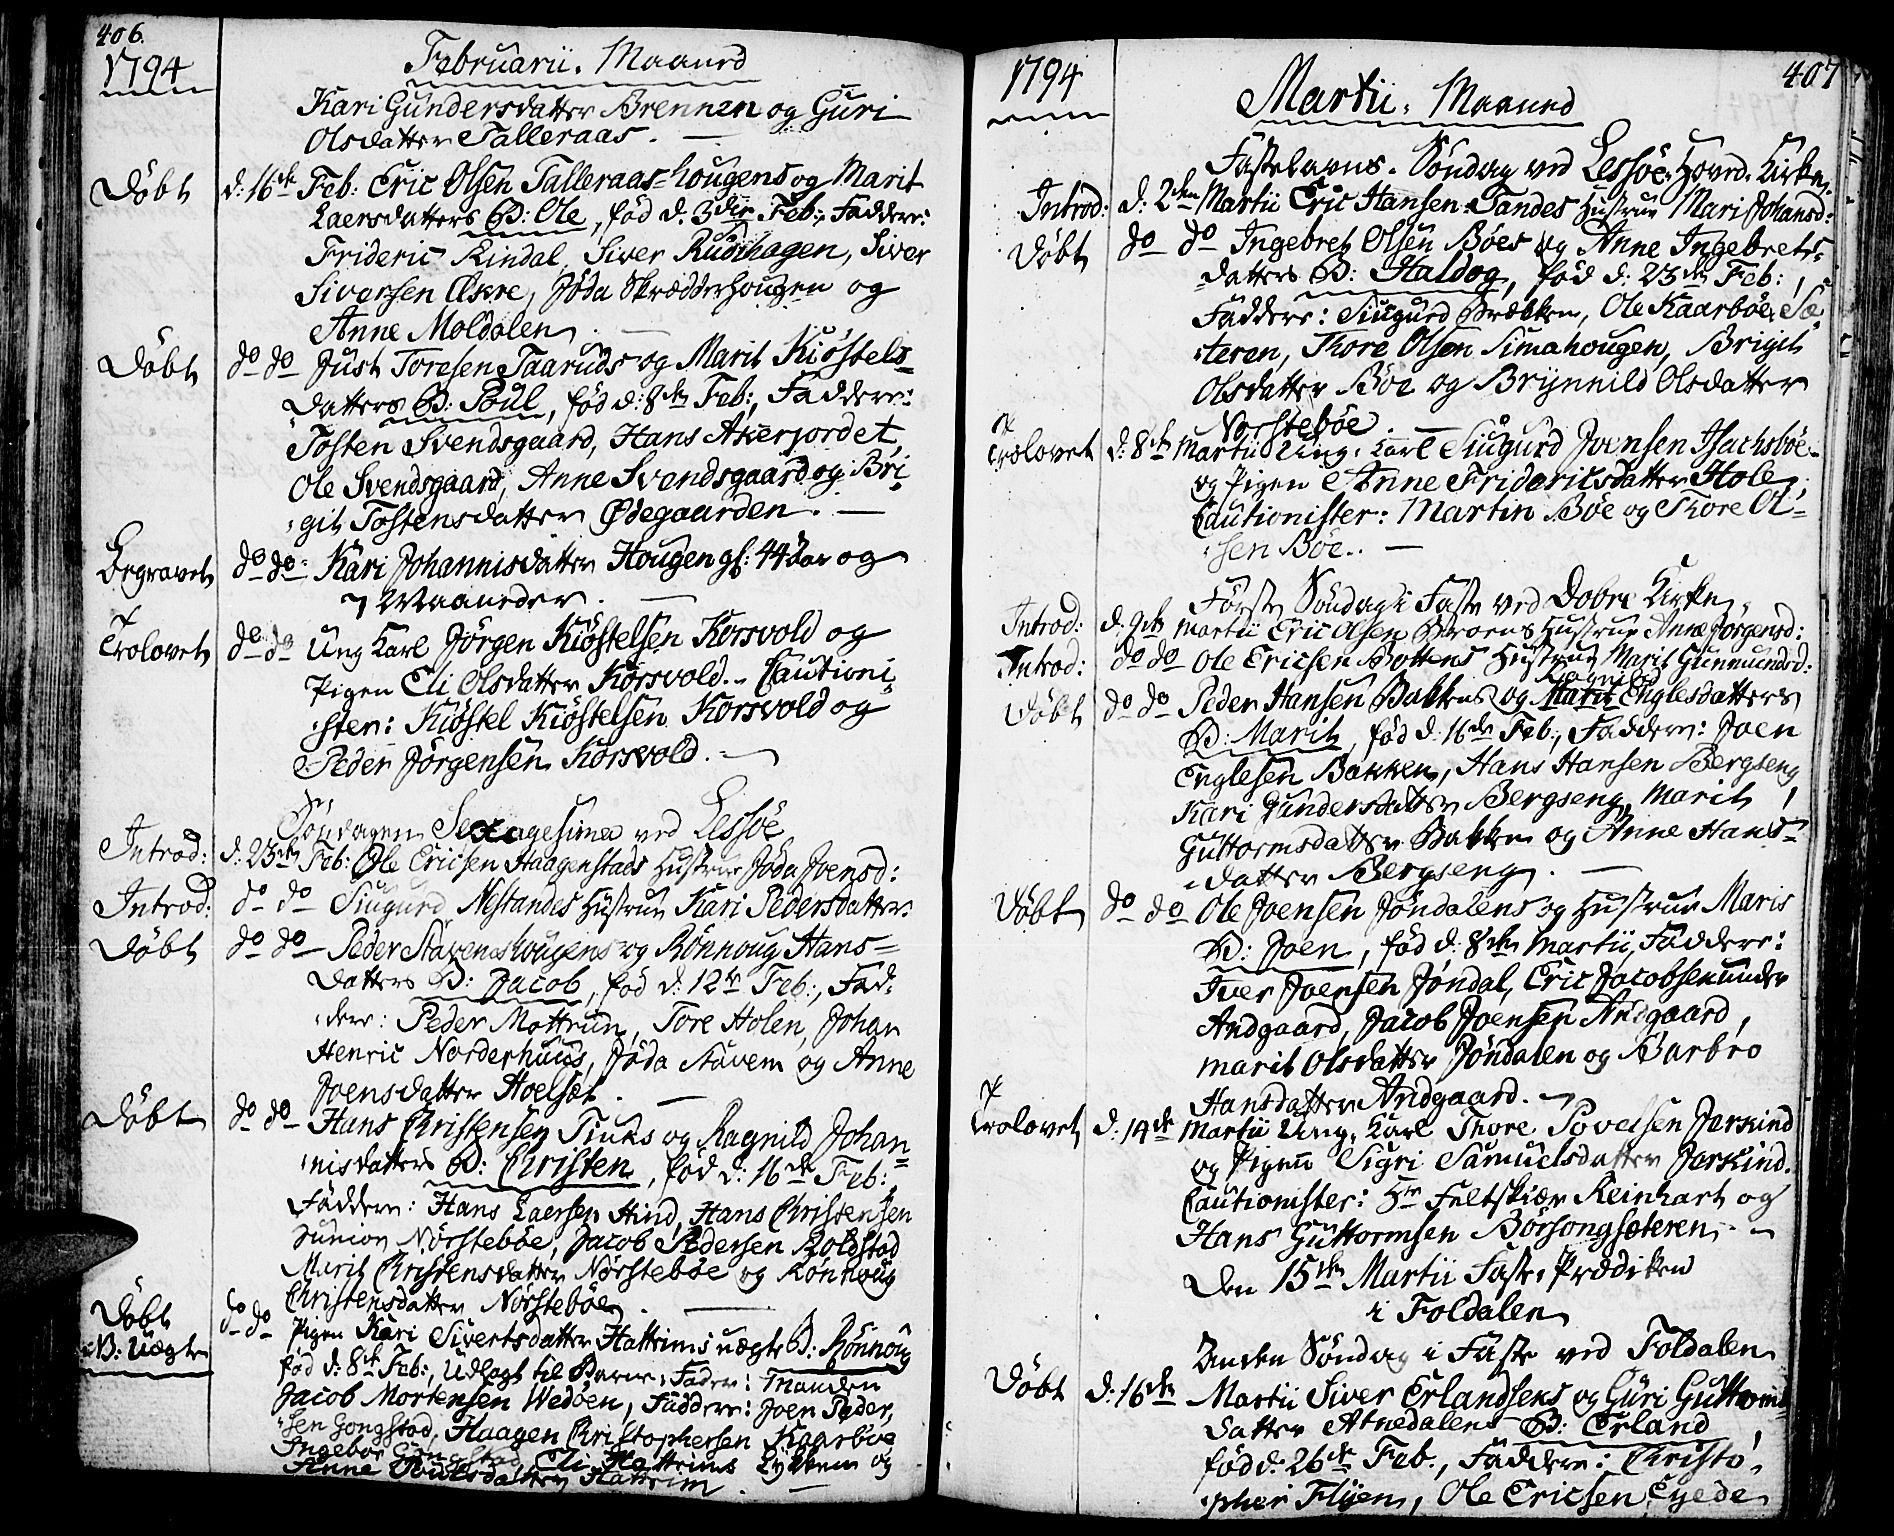 406.
1794
Februarii. Maaned
Kari Gundersdatter Brennen og Guri
Olsdatter Talleraas. —
Döbt d: 16de Feb: Eric Olsen Talleraas=hougens og Marit
Laersdatters B: Ole, föd d. 3die Feb:, Faddere:
Frideric Kindal, Siver Rudihagen, Siver
Siversen Økre, Jöda Skrædderhougen og
Anne Moldalen. —
Döbt do do Just Toresen Taaruds og Marit Kiöstels=
datters B: Poul, föd d: 8de Feb:, Faddere:
Tosten Svendsgaard, Hans Akerjordet,
Ole Svendsgaard, Anne Svendsgaard og Bri,
,git Tostensdatter Ødegaarden. —
Begravet do do= Kari Johannisdatter Hougen gl: 44 Aar og
7 Maaneder. —
Trolovet do do Ung Karl Jörgen Kiöstelsen Korsvold og
Pigen Eli Olsdatter Korsvold. Cautioni,
,ster: Kiöstel Kiöstelsen Korsvold og
Peder Jörgensen Korsvold. —
Söndagen Sexagesima ved Lessöe
Introd: d: 23de Feb: Ole Ericsen Haagenstads Hustrue Jöda Joensd:
Introd: do do Siugurd Nestandes Hustrue Kari Pedersdatter
Döbt do do Peder Stavenshougens og Rönnoug Hans=
datters B: Jacob, föd d: 12te Feb:, Fad,
,dere: Peder Mottrun, Tore Holen, Johan
Henric Norderhuus, Jöda Stavem og Anne
Joensdatter Hoelsæt. —
Döbt do do Hans Christensen Tinks og Ragnild Johan=
,nisdatters B: Christen, föd d: 16de Feb:,
Faddere: Hans Laersen Hind, Hans Christensen
Junior Nörsteböe, Jacob Pedersen Roldstad
Marit Christensdatter Nörsteböe og Rönnoug
Christensdatter Nörsteböe. —
Döbt do do Pigen Kari Sivertsdatter Hattrims uægte B: Rönnoug
B: Uægte föd d: 8de Feb:, Udlagt til Barne, Fader: Manden
Jacob Mortensen Wedöen, Faddere: Joen Peder,
,sen Gongstad, Haagen Christophersen Kaarböe
Ingebor Gongstad, Eli Hattrims Lykkem og
Anne Hattrim. —
1794
407
Martii. Maaned
Fastelavns. Söndag ved Lessöe Hoved. Kirke,
Introd: d. 2den Martii Eric Hansen Tandes Hustrue Mari Johansd:
Döbt do do Ingebret Olsen Böes og Anne Ingebrets,
datters B: Haldog, föd d: 23de Feb:,
Faddere: Siugurd Brækken, Ole Kaarböe, Sæ
,teren, Thore Olsen Simahougen, Brigit
Olsdatter Böe og Brynnild Olsdatter
Norsteböe. —
Trolovet d: 8de Martii Ung. Karl Siugurd Joensen Isachsböe
og Pigen Anne Fridericsdatter Hole,
Cautionister: Martin Böe og Thore Ol=
,sen Böe. —
Förste Söndag i Faste ved Dobre Kirke
Introd: d: 9de Martii Eric Olsen Broens Hustrue Anne Jörgensd:
Introd: do do Ole Ericsen Bottens Hustrue Marit Gunmundsd:
Döbt do do Peder Hansen Bakkens og Marit Ragnild Englesdatters
B: Marit, föd d: 16de Feb:, Faddere: Joen
Englesen Bakken, Hans Hansen Bergseng
Kari Gundersdatter Bergseng, Marit
Guttormsdatter Bakken og Anne Hans=
,datter Bergseng. —
Döbt do do Ole Joensen Jöndalens og Hustrue Maris
B: Joen, föd d: 8de Martii, Faddere:
Iver Joensen Jöndal, Eric Jacobsen under
Andgaard, Jacob Joensen Andgaard,
Marit Olsdatter Jöndalen og Barbro
Hansdatter Andgaard. —
Trolovet d: 14de Martii Ung. Karl Thore Povelsen Jerkind
og Pigen Sigri Samuelsdatter Jerkind.
Cautionister: Hr Feltskiær Reinhart og
Hans Guttormsen Börsongsæteren. —
Den 15de Martii Faste, Prædiken
i Foldalen
Anden Söndag i Faste ved Foldalen
Döbt d: 16de Martii Siver Erlandsens og Guri Guttorms
datter Atnedalens B: Erland,
föd d: 26de Feb., Faddere: Christo,
,pher Flyen, Ole Ericsen Eyede